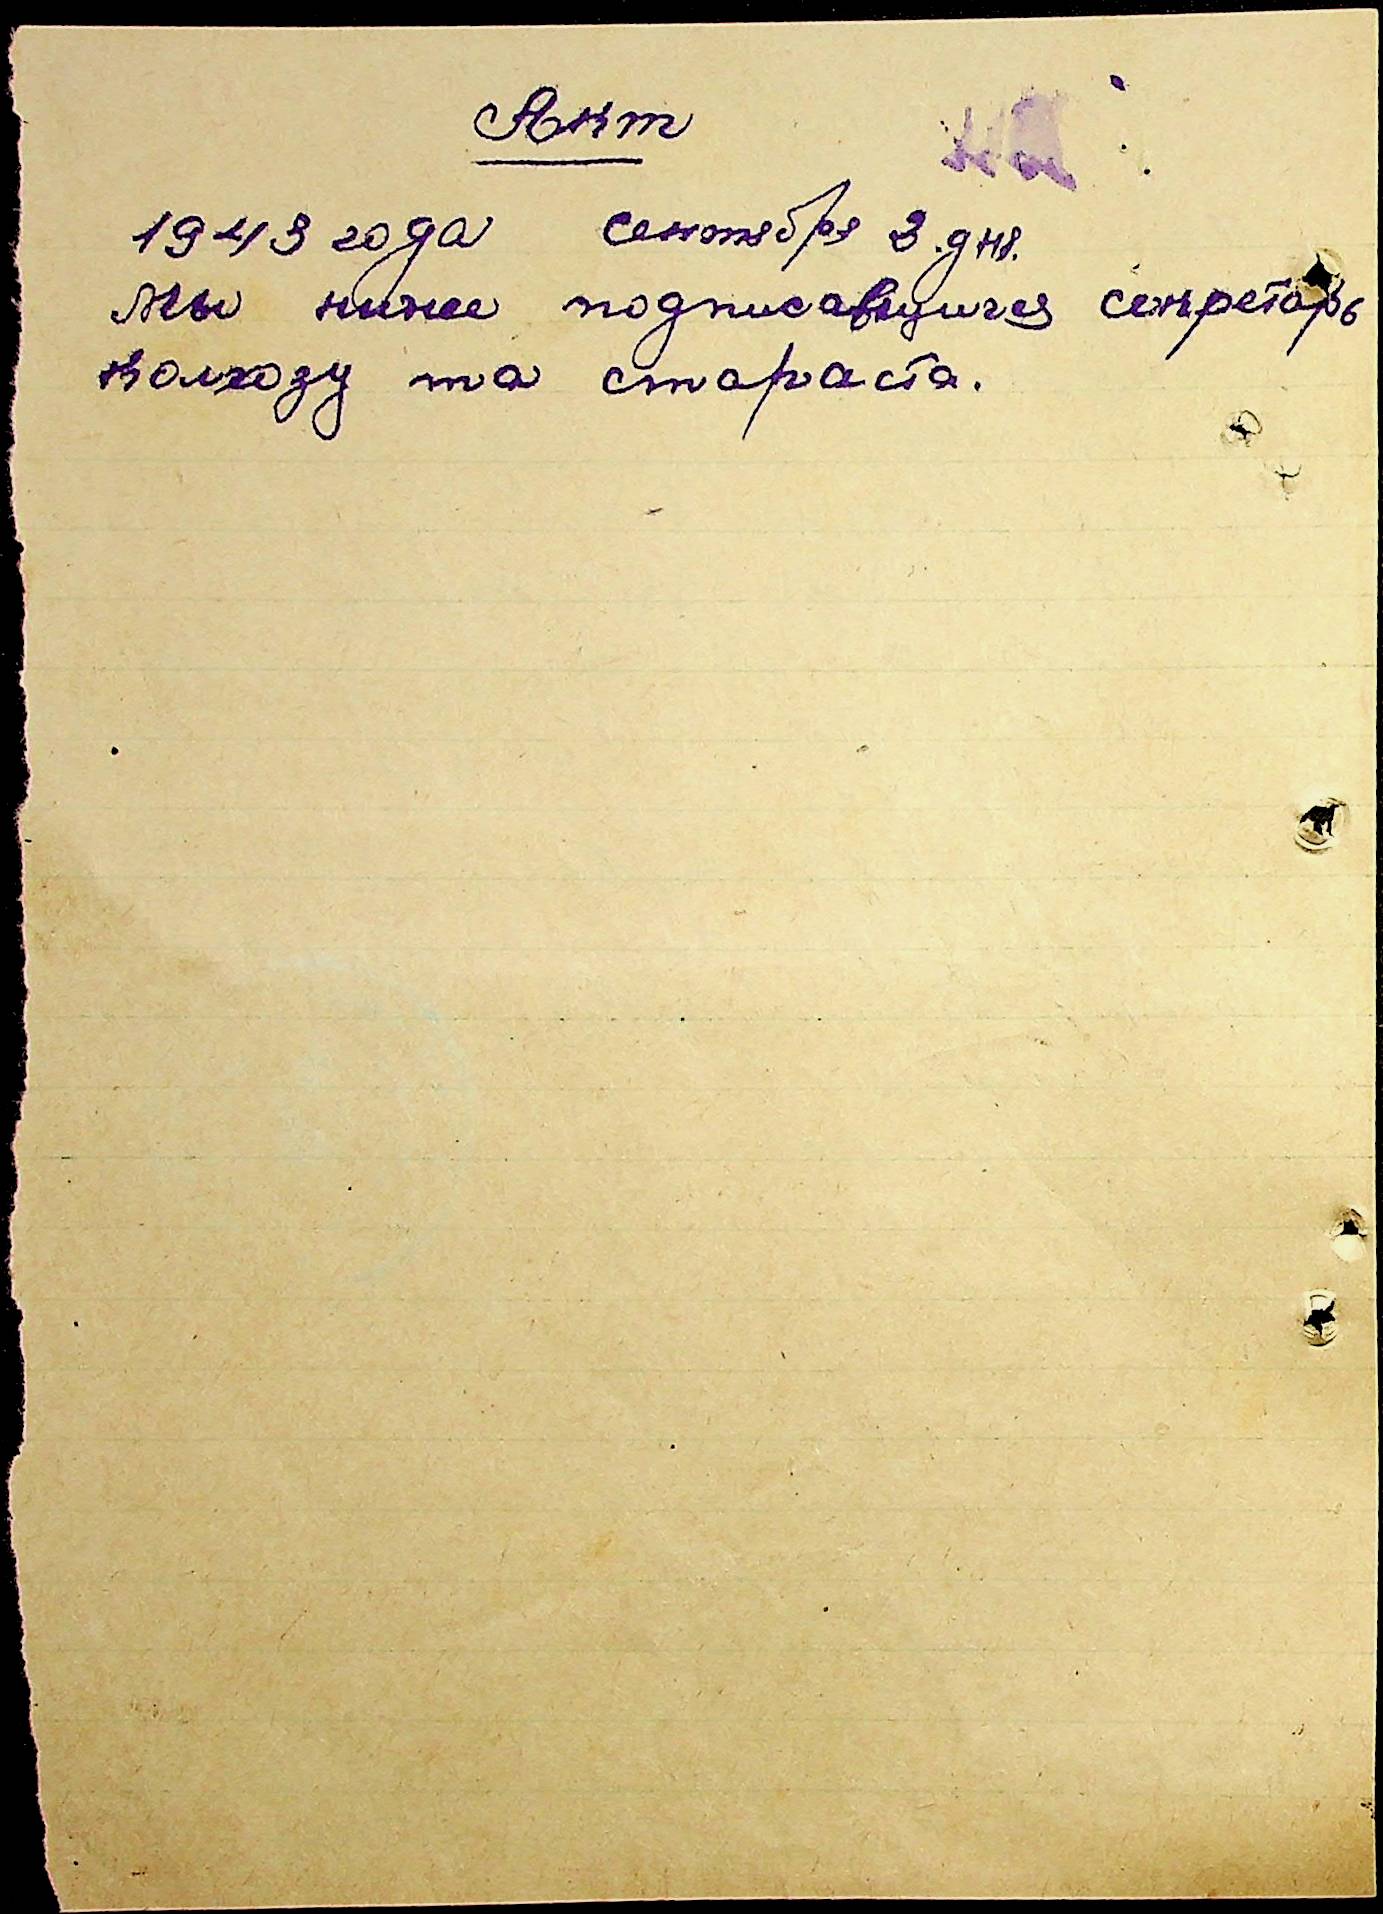 Акт
1943 года сентября 3. дня.
Мы ниже подписавшиися секретарь
колхозу та стараста.